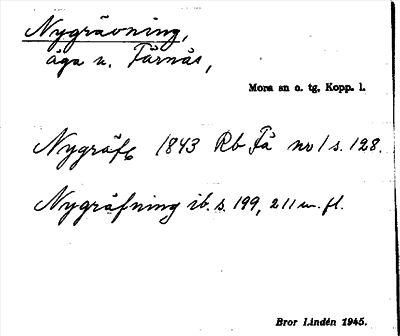 Nygrävning,
äga u. Färnäs,
Mora sn o. tg, Kopp. l.
Nygräfg 1843 Rb Fä no 1 s. 128.
Nygräfning ib. s. 199, 211 m. fl.
Bror Lindén 1945.